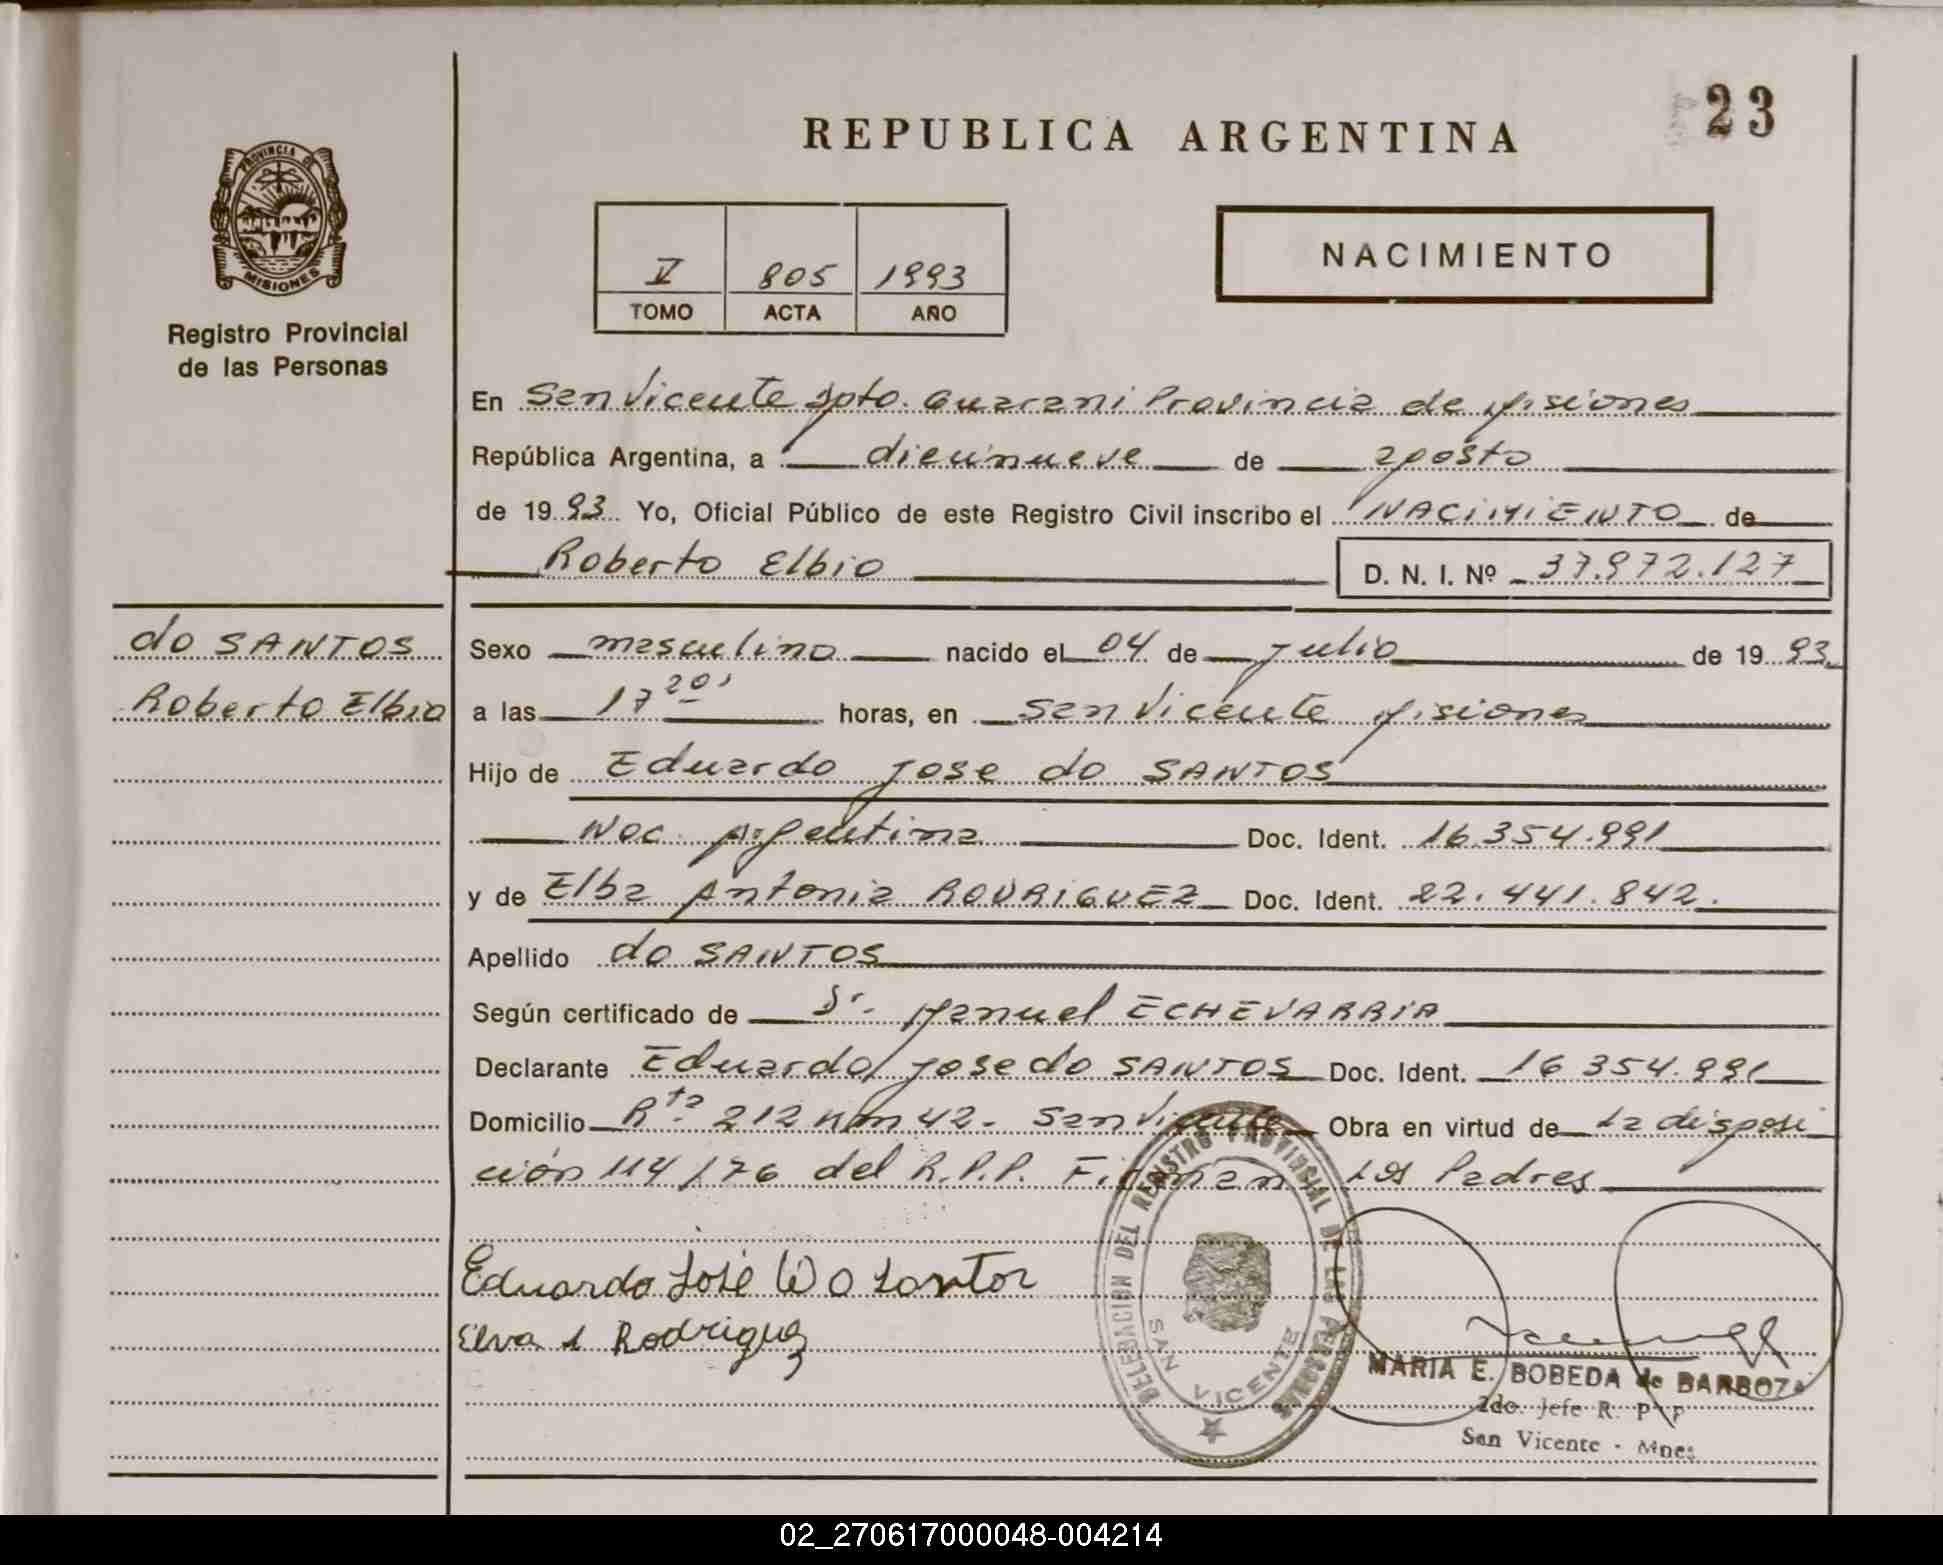 23
REPUBLICA ARGENTINA
PROVINCIA DE
MISIONES
NACIMIENTO
V 805 1993
TOMO ACTA AÑO
Registro Provincial
de las Personas
En San Vicente Dpto. Guarani Provincia de Misiones
República Argentina, a diecinueve de agosto
de 1993 Yo, Oficial Público de este Registro Civil inscribo el NACIMIENTO de
Roberto Elbio D. N. I. Nº 37.972.127
do SANTOS
Roberto Elbio
Sexo masculino nacido el 04 de julio de 1993
a las 17 20' horas, en San Vicente Misiones
Hijo de Eduardo Jose do SANTOS
Nac. Argentina Doc. Ident. 16.354.991
y de Elba Antonia RODRIGUEZ Doc. Ident. 22.441.842.
Apellido do SANTOS
Según certificado de Dr. Manuel ECHEVARRIA
Declarante Eduardo Jose do SANTOS Doc. Ident. 16 354.991
Domicilio Rta. 212 Km 42- San Vicente Obra en virtud de la disposi
ción 114/76 del R.P.P. Firman los Padres
Eduardo José Do Santos
Elva A Rodriguez
DELEGACION DEL REGISTRO PROVINCIAL DE LAS PERSONAS
SAN VICENTE
MARIA E. BOBEDA de BARBOZA
2do. Jefe R. P. P
San Vicente - Mnes
02_270617000048-004214